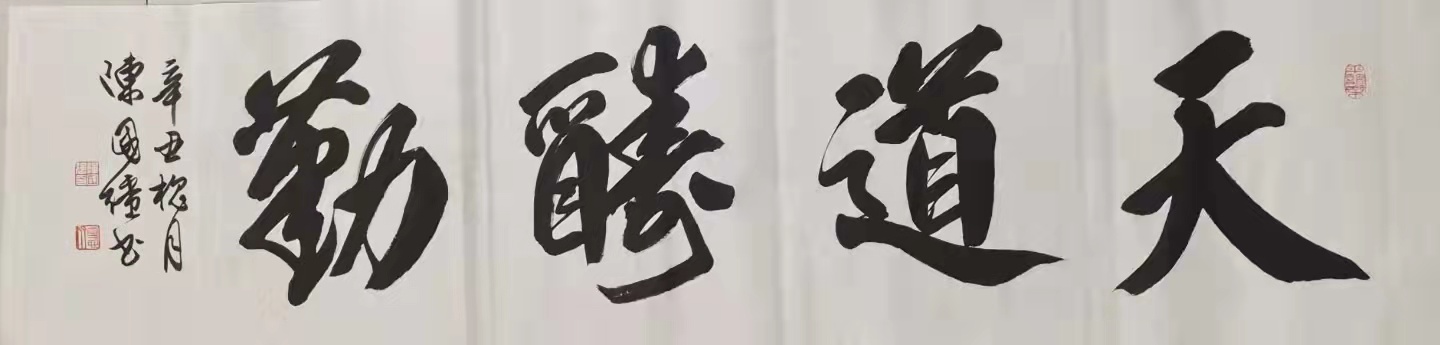 天道酬勤
辛丑槐月
陳國书